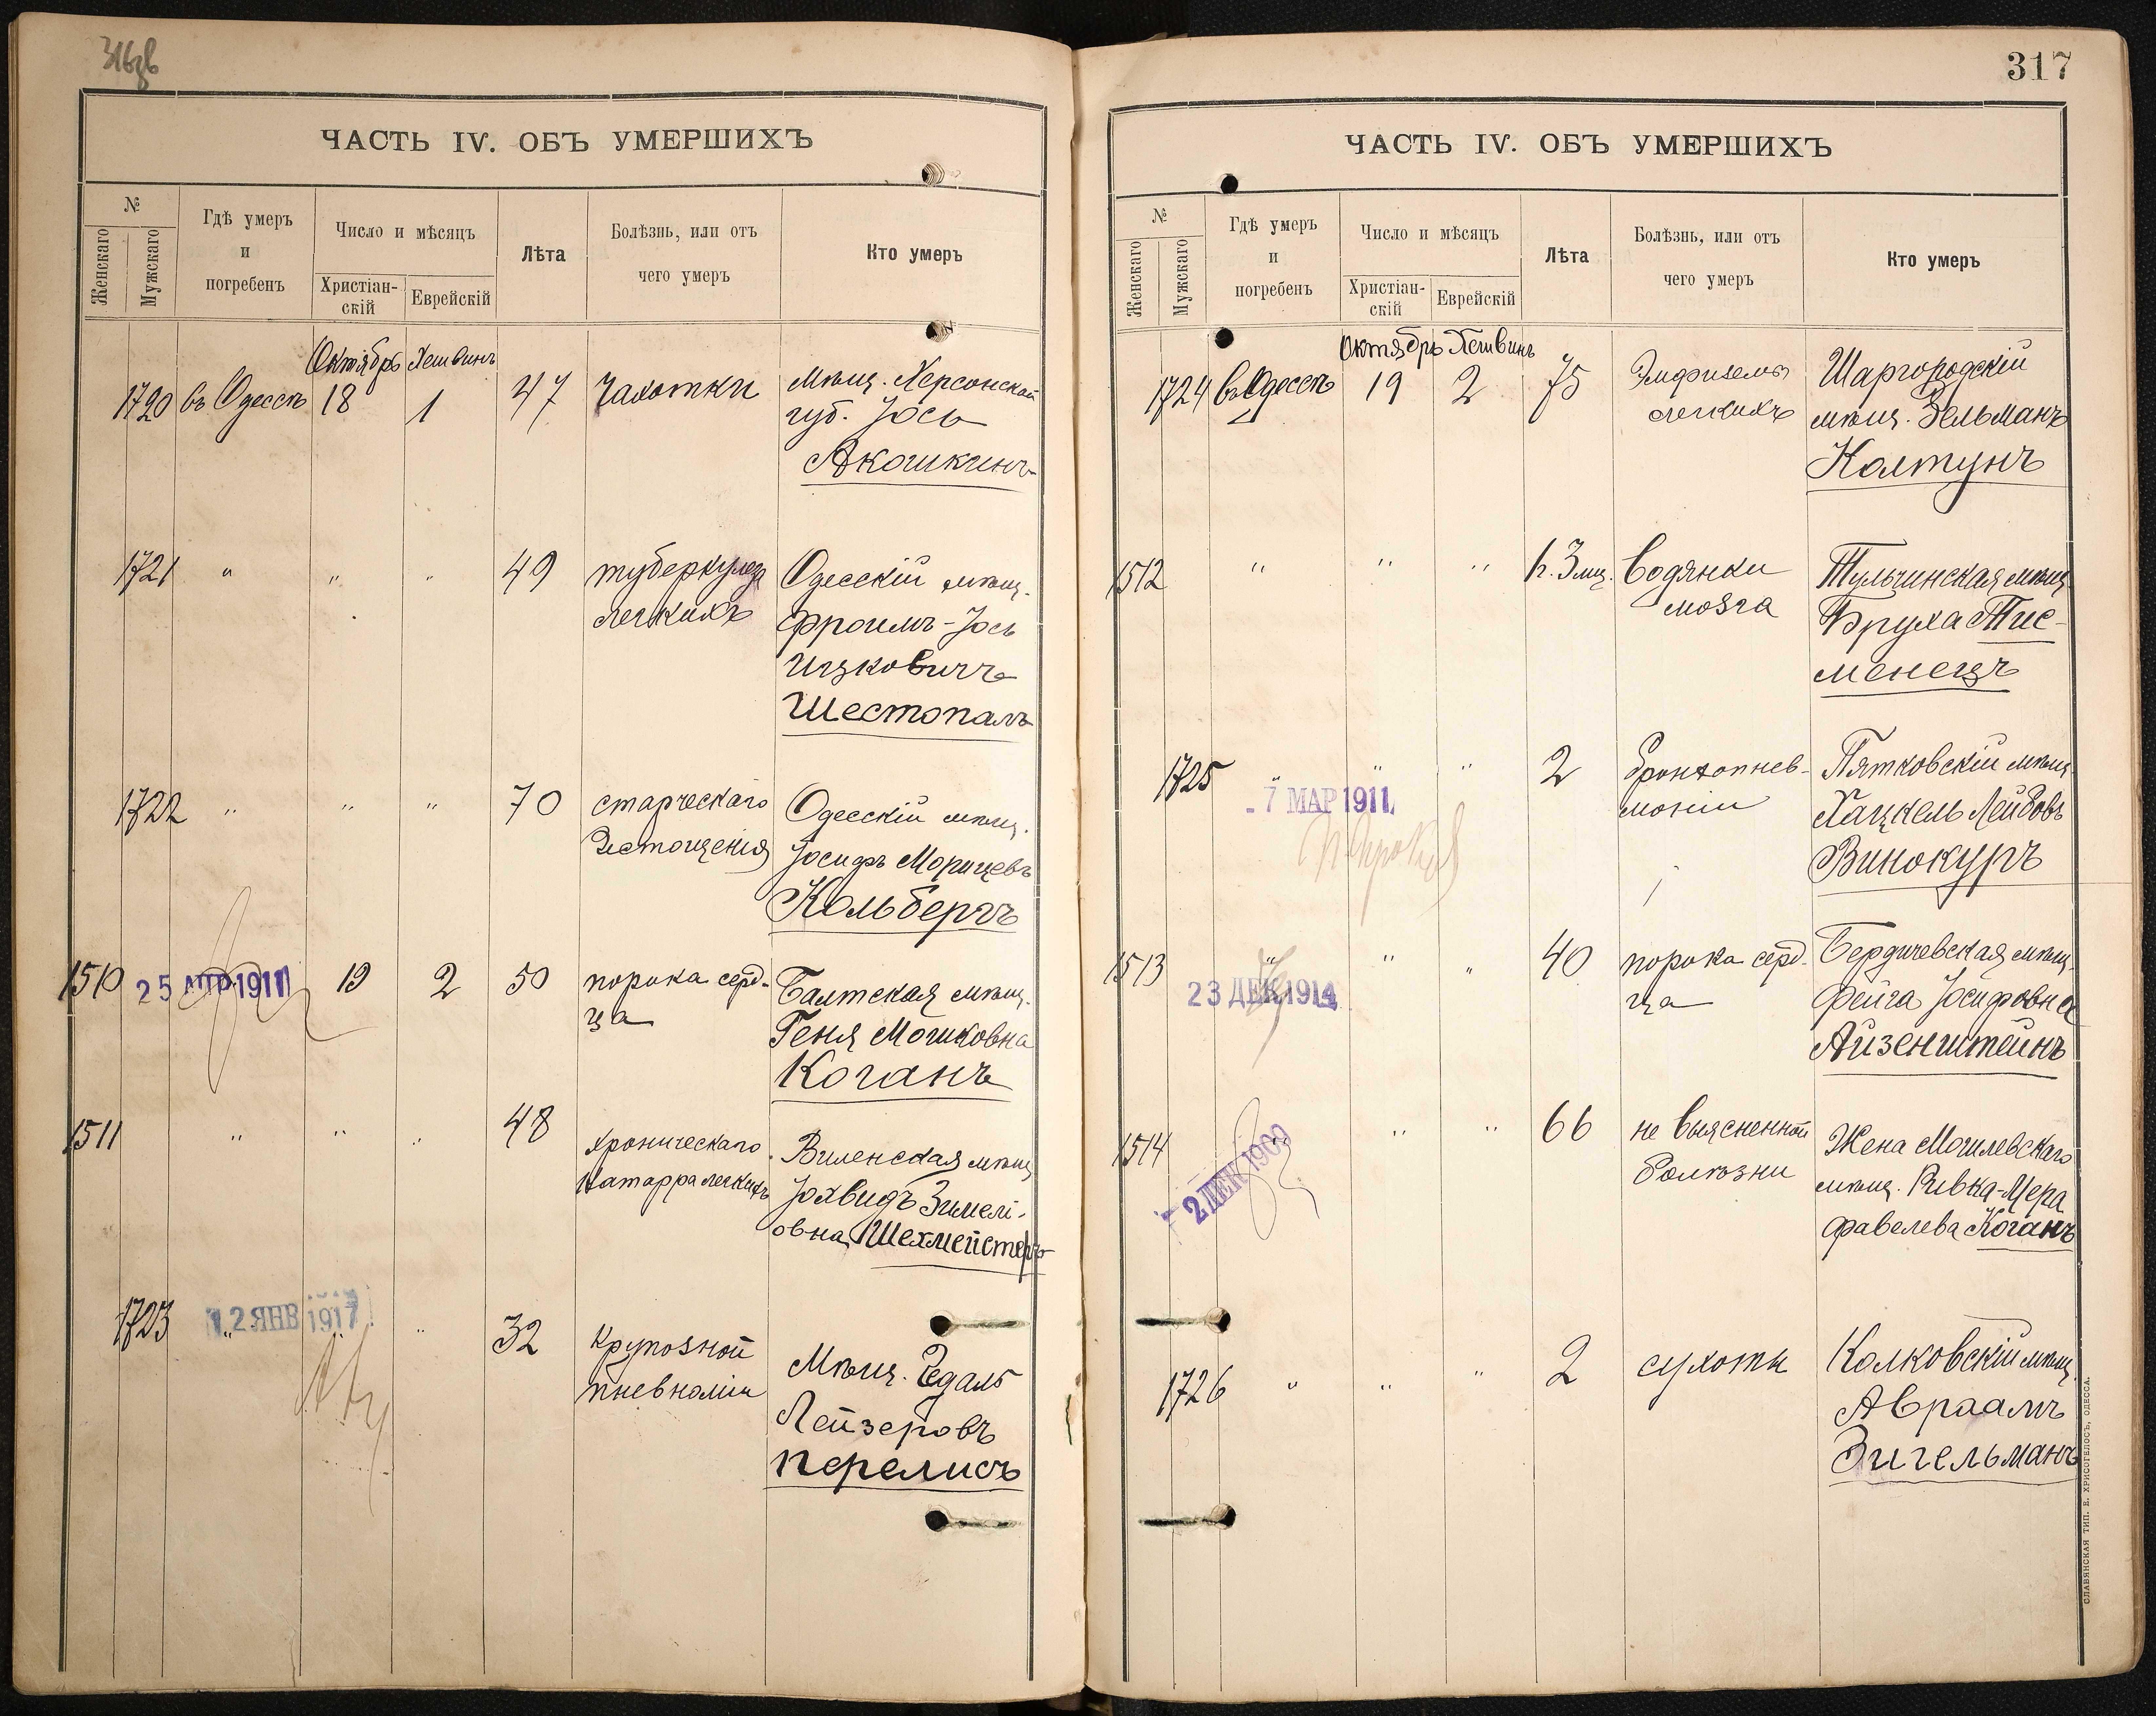 316
ЧАСТЬ IV. ОБЪ УМЕРШИХЪ
№
Женскаго
Мужскаго
Гдѣ умеръ
и
погребенъ
Число и мѣсяцъ
Христіан-
скій
Еврейскій
Лѣта
Болѣзнь, или отъ
чего умеръ
Кто умеръ
Октябрь Хешвинъ
1720 въ Одессѣ 18 1 47 Чахотки Мѣщ. Херсонской
губ. Іось
Акошкинъ
1721 " " " 49 туберкулеза Одесскій мѣщ.
легкихъ Фроимъ-Іось
Ицковичъ
Шестопалъ
1722 " " " 70 старческаго Одесскій мѣщ.
Истощенія Іосифъ Морицевъ
Кольбергъ
1510 25 АПР 1911 19 2 50 порока серд- Балтская мѣщ.
ца Геня Мошковна
Коганъ
1511 " " " 48 хроническаго Виленская мѣщ.
Катарра легкихъ Іохвидъ Зимелі-
овна Шехмейстеръ
1723 12 ЯНВ 1917 " " " 32 Крупозной Мѣщ. Гедаль
пневноміи Лейзеровъ
Перелисъ
317
ЧАСТЬ IV. ОБЪ УМЕРШИХЪ
№
Женскаго
Мужскаго
Гдѣ умеръ
и
погребенъ
Число и мѣсяцъ
Христіан-
скій
Еврейскій
Лѣта
Болѣзнь, или отъ
чего умеръ
Кто умеръ
Октябрь Хешвинъ
1724 въ Одессѣ 19 2 75 Эмфиземы Шаргородскій
легкихъ мѣщ. Зельманъ
Колтунъ
1512 " " " 3 мц. Водянки Тульчинская мѣщ.
мозга Бруха Тис-
менецъ
1725 " " " 2 бронхопнев- Пятковскій мѣщ.
7 МАР 1911
моніи Хацкель Лейбовъ
Винокуръ
1513 " " " 40 порока серд- Бердичевская мѣщ.
23 ДЕК 1914
ца Фейга Іосифовна
Айзенштейнъ
1514 " " " 66 не выясненной Жена Могилевскаго
2 ДЕК 1909
болѣзни мѣщ. Ривка-Мера
Фавелева Коганъ
1726 " " " 2 сухоты Колковскій мѣщ.
Авраамъ
Зигельманъ
СЛАВЯНСКАЯ ТИП. Е. ХРИСОГЕЛОСЪ, ОДЕССА.